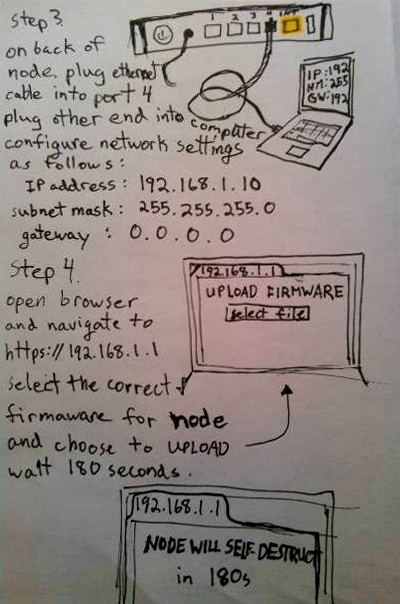 step 3
on back of
node, plug ethernet
cable into port 4
plug other end into computer
configure network settings
as follows:
IP address: 192.168.1.10
subnet mask: 255.255.255.0
gateway: 0.0.0.0
1 2 3 4 INT
IP:192
NM:255
GW:192
Step 4.
open browser
and navigate to
https://192.168.1.1
select the correct
firmaware for node
and choose to UPLOAD
wait 180 seconds.
192.168.1.1
UPLOAD FIRMWARE
select file
192.168.1.1
NODE WILL SELF DESTRUCT
in 180s